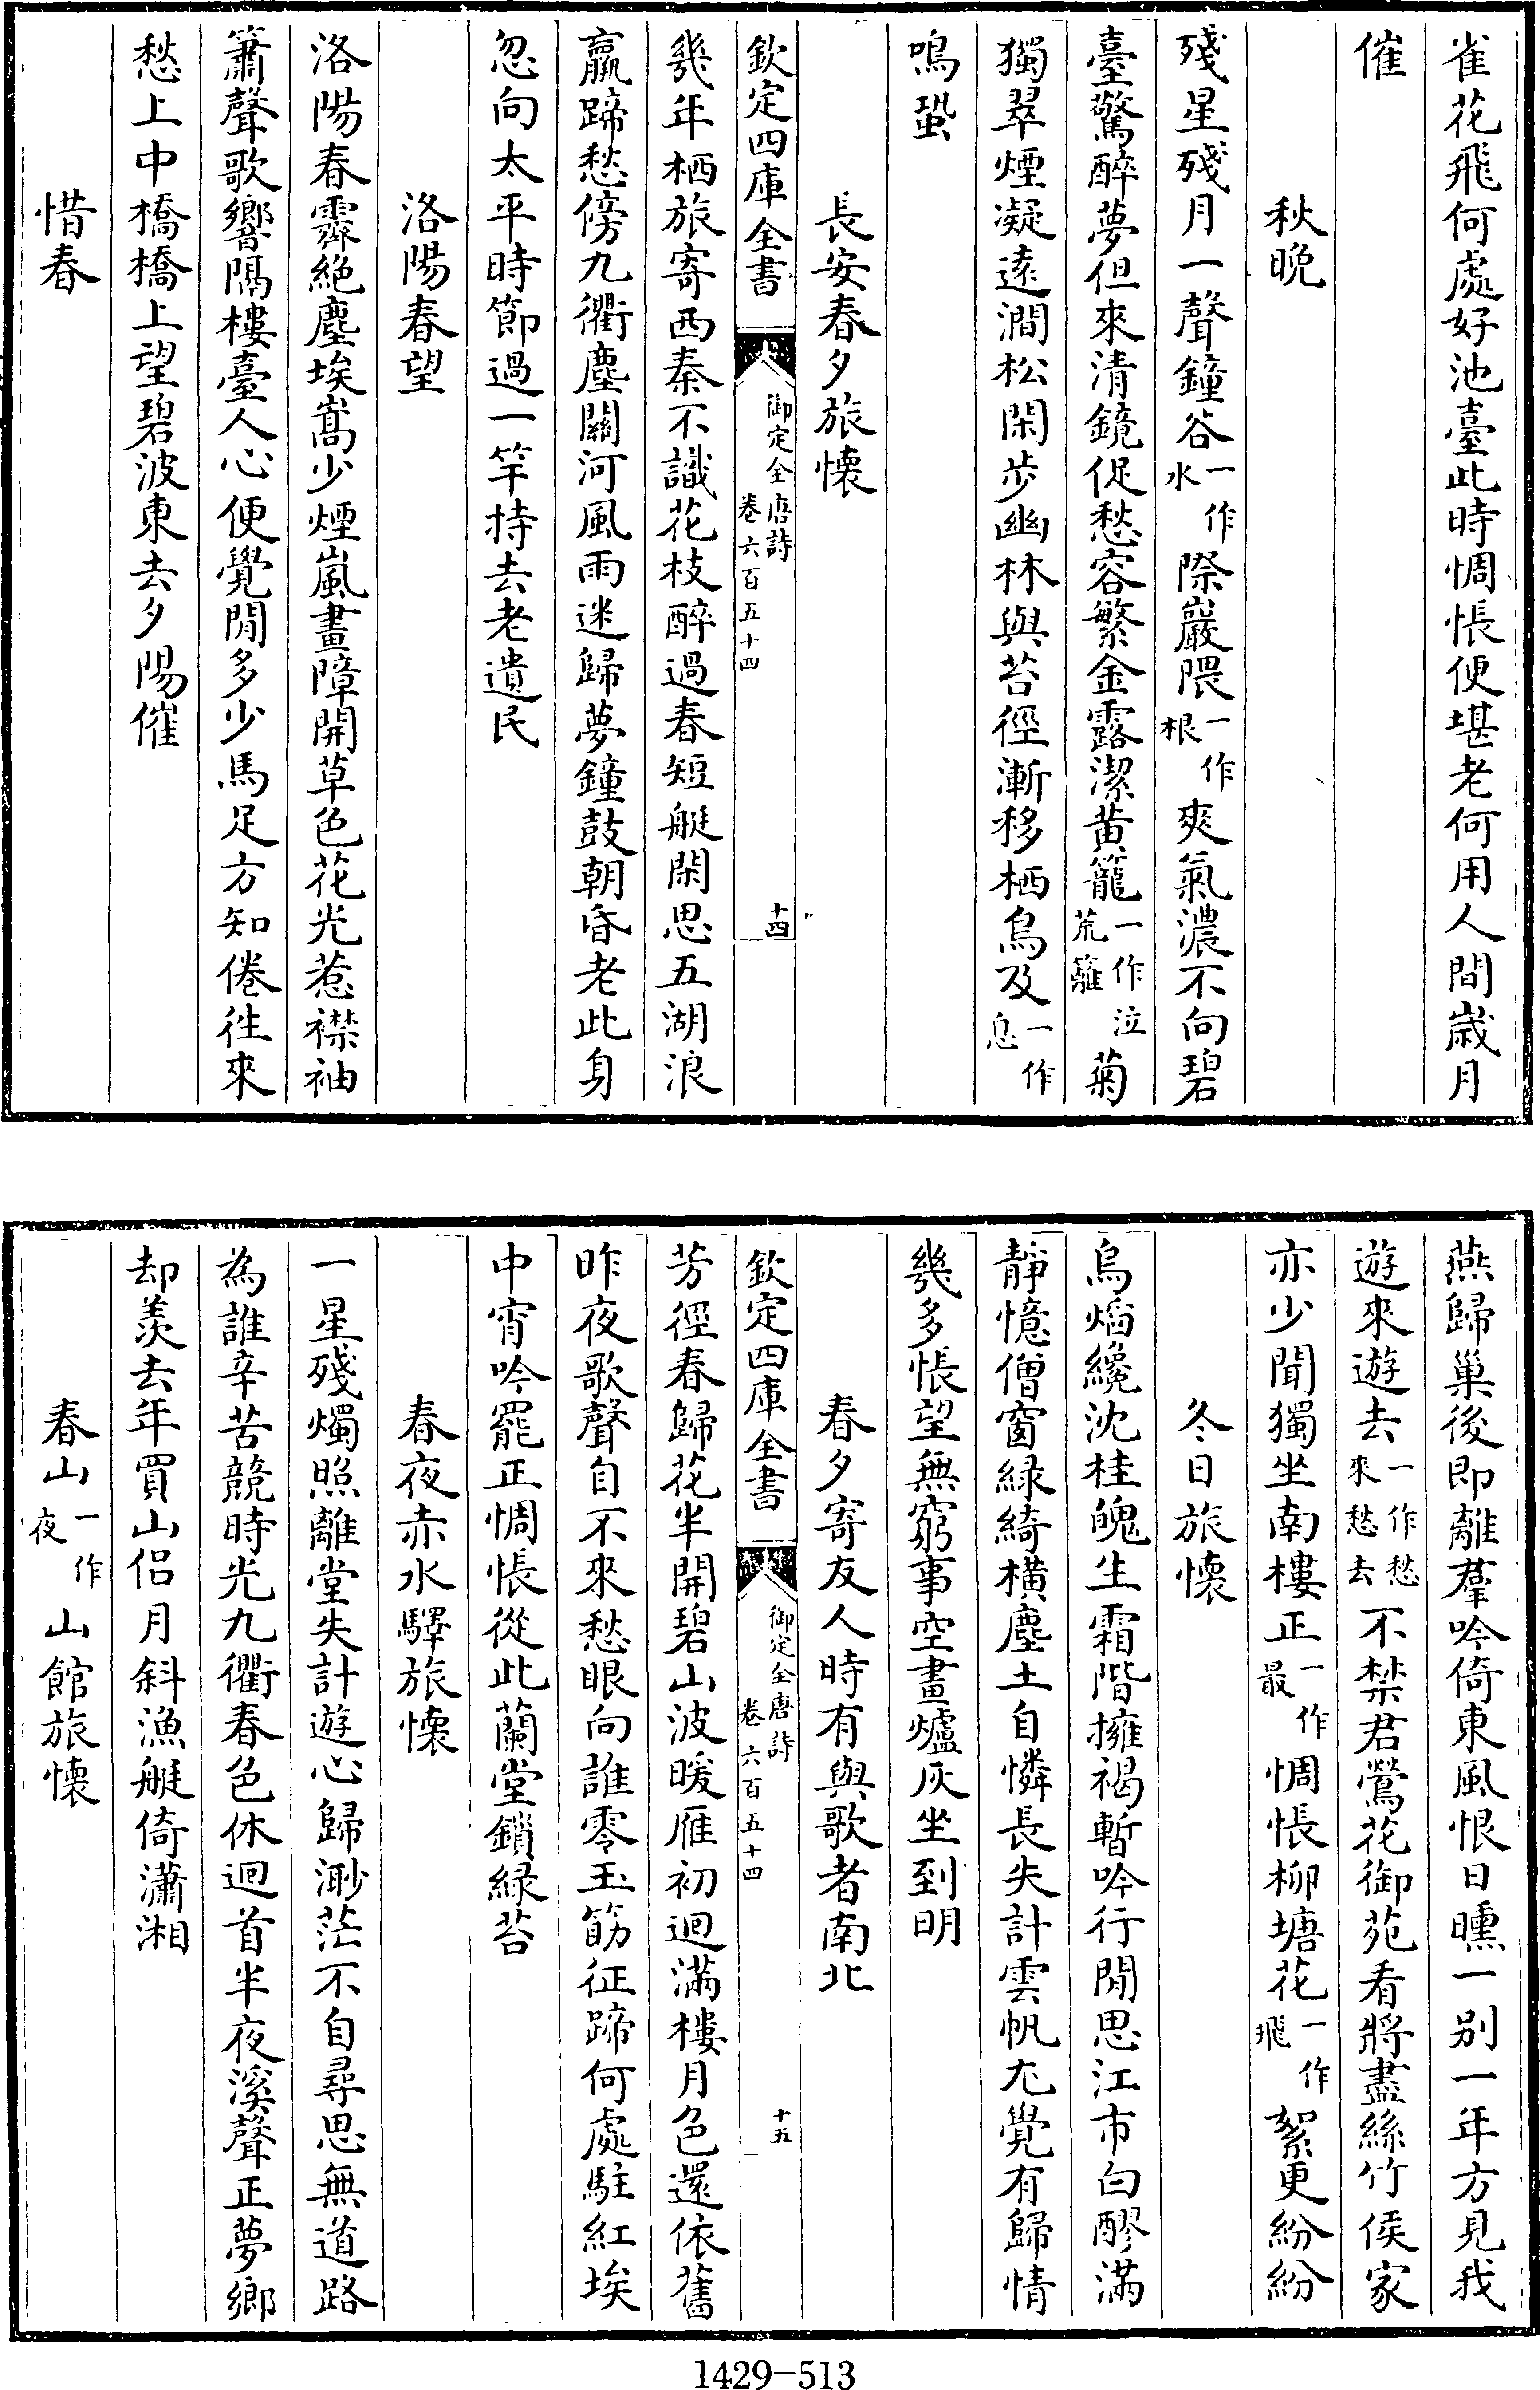 雀花飛何處好池臺此時惆悵便堪老何用人間歲月
催
秋晚
殘星殘月一聲鐘谷一作水際巖隈一作根爽氣濃不向碧
臺驚醉夢但來清鏡促愁容繁金露潔黃籠一作泣荒籬菊
獨翠煙凝遠澗松閑步幽林與苔徑漸移栖鳥及一作息
鳴蛩
長安春夕旅懷
欽定四庫全書
御定全唐詩
卷六百五十四
十四
幾年栖旅寄西秦不識花枝醉過春短艇閑思五湖浪
羸蹄愁傍九衢塵關河風雨迷歸夢鐘鼓朝昏老此身
忽向太平時節過一竿持去老遺民
洛陽春望
洛陽春霽絕塵埃嵩少煙嵐畫障開草色花光惹襟袖
簫聲歌響隔樓臺人心便覺閒多少馬足方知倦往來
愁上中橋橋上望碧波東去夕陽催
惜春
燕歸巢後即離羣吟倚東風恨日曛一別一年方見我
遊來遊去一作愁來愁去不禁君鶯花御苑看將盡絲竹侯家
亦少聞獨坐南樓正一作最惆悵柳塘花一作飛絮更紛紛
冬日旅懷
烏焰纔沈桂魄生霜階擁褐暫吟行閒思江市白醪滿
靜憶僧窗綠綺橫塵土自憐長失計雲帆尢覺有歸情
幾多悵望無窮事空畫爐灰坐到明
春夕寄友人時有與歌者南北
欽定四庫全書
御定全唐詩
卷六百五十四
十五
芳徑春歸花半開碧山波暖雁初迴滿樓月色還依舊
昨夜歌聲自不來愁眼向誰零玉筯征蹄何處駐紅埃
中宵吟罷正惆悵從此蘭堂鎖綠苔
春夜赤水驛旅懷
一星殘燭照離堂失計遊心歸渺茫不自尋思無道路
為誰辛苦競時光九衢春色休迴首半夜溪聲正夢鄉
却羨去年買山侶月斜漁艇倚瀟湘
春山一作夜山館旅懷
1429-513